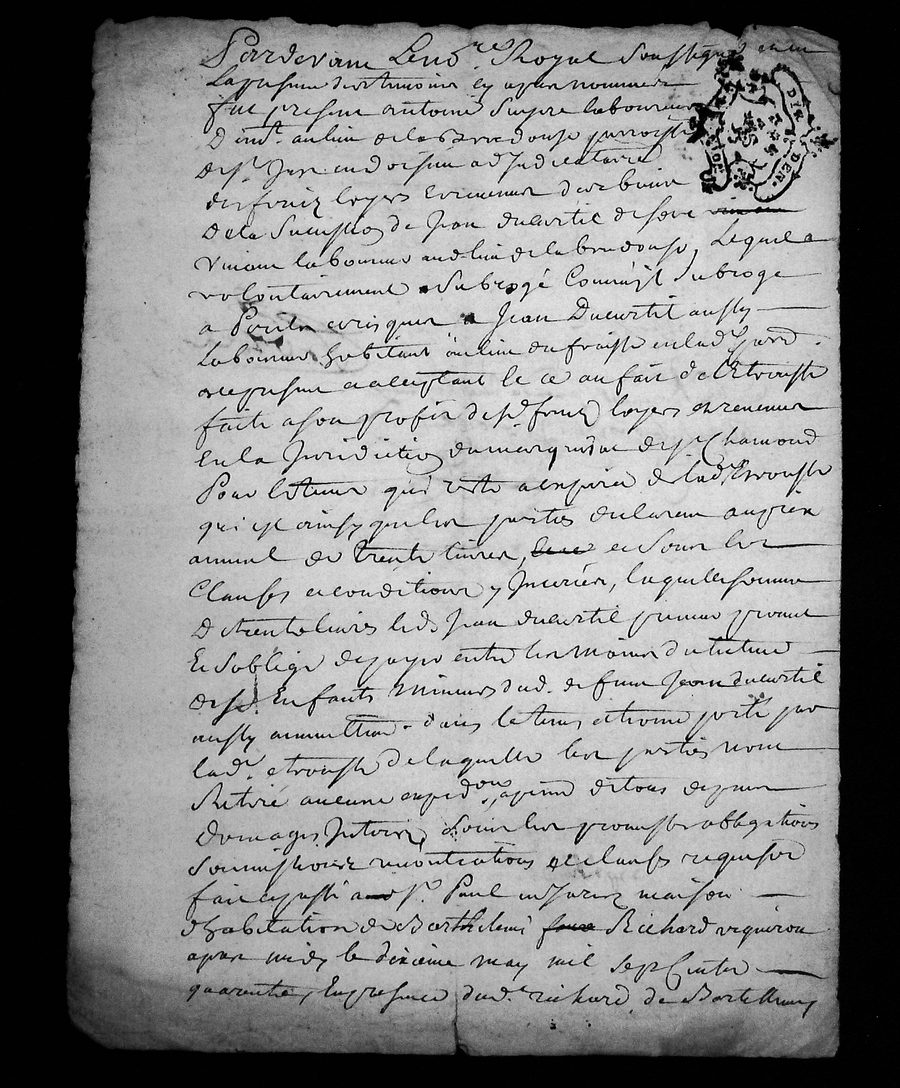 Pardevant Le no.re Royal Soussigné et en
La presence des temoins cy apres nommés
fut present antoine laboureur
D
de s.t Just en doizieu adjudicataire
des fruiz loyers et revenus des biens
De la Succession de Jean ducurtil
vivant laboureur audit lieu de la Lequel a
volontairement Subrogé Comme jl Subroge
a jean Ducurtil aussy
Laboureur habitant au lieu du fraisse en lad.
present et acceptant le ce au fait de l'Etrousse
faite a son profit desd. fruiz loyers et revenus
En la Juridiction du marquisat de s.t Chamond
Pour le tems qui reste a expirer de lad. Etrousse
qui est ainsy que les parties declarent au prix
annuel de trente livres, et Sous les
Clauses et conditions y Jnserées, laquelle somme
De trente livres led. Jean ducurtil preneur promet
Et S'oblige de payer entre les mains du tuteur
desd. Enfants Mineurs dud. defunt Jean ducurtil
aussy annuellement dans le tems et terme porté par
lad. etrousse de laquelle les parties n'ont
Retiré aucune a peine de tous depens
Domages Jnterets, Sous les promesses obligations
Soumissions renontiations et clauses requises
fait et passé a s.t Paul en Jarez maison
d'habitation de Barthelemi Richard vigneron
apres midy le dixieme may mil Sept Cents
quarante, En presence dud. richard, de Barthelemy